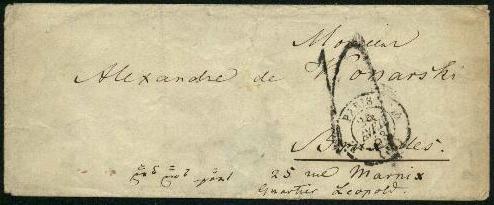 Monsieur
Alexandre de Konarski
Bruxelles.
25 rue Marnix
Quartier Léopold.
PARIS